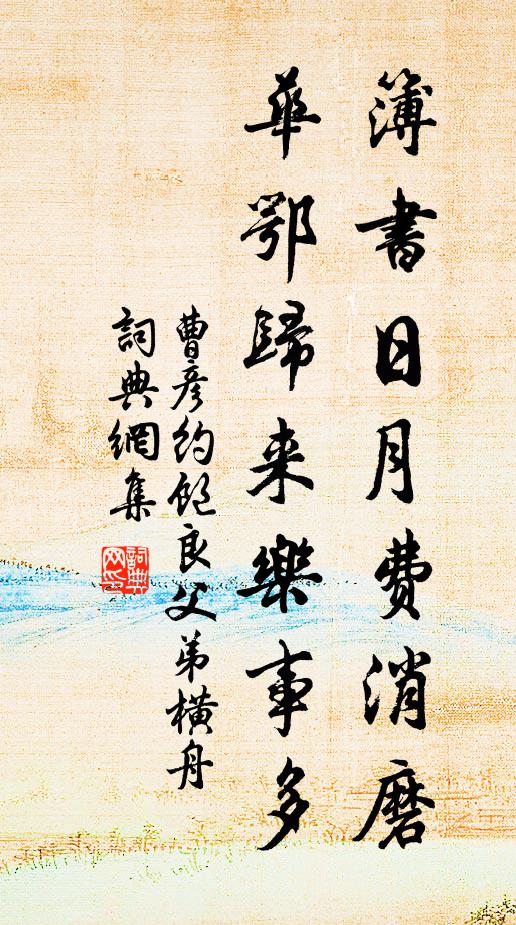 簿書日月費消磨
華鄂歸来樂事多
曹彦約餽良父弟横舟
詞典網集
詞典
网印